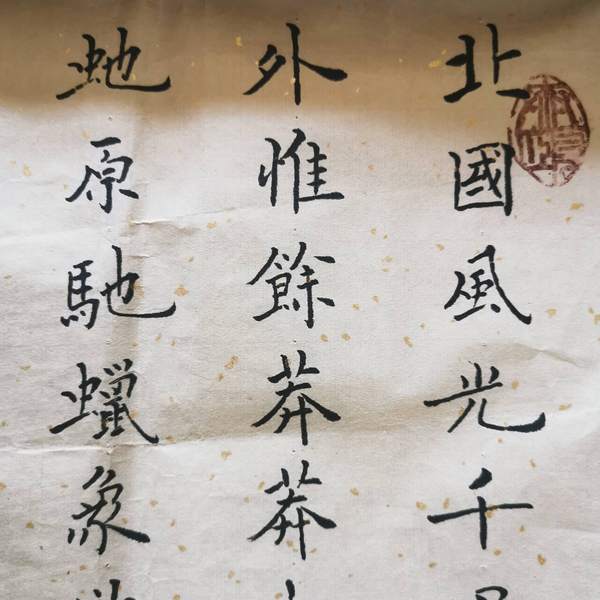 北國風光千
外惟餘莽莽
虵原馳蠟象